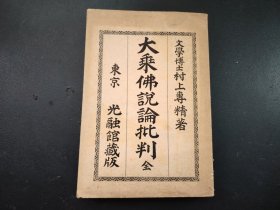 文學博士村上專精著
大乘佛說論批判 全
東京 光融館藏版